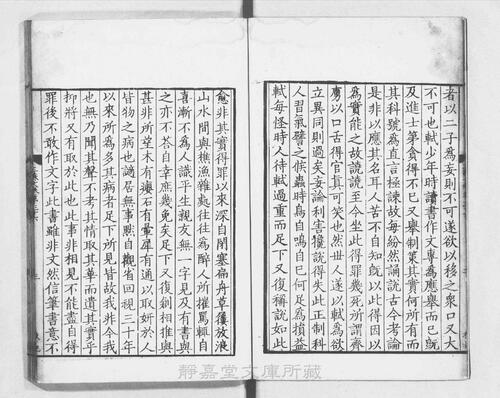 者以二子爲妄則不可遂欲以移之衆口又大
不可也軾少年時讀書作文專爲應舉而已旣
及進士第貪得不已又舉制策其實何所有而
其科號爲直言極諫故每紛然誦說古今考論
是非以應其名耳人苦不自知旣以此得因以
爲實能之故譊譊至今坐此得罪幾死所謂齊
虜以口舌得官真可笑也然世人遂以軾爲欲
立異同則過矣妄論利害攙說得失此正制科
人習氣譬之候蟲時鳥自鳴自已何足爲損益
軾每怪時人待軾過重而足下又復稱說如此
愈非其實得罪以來深自閉塞扁舟草屨放浪
山水間與樵漁雜處往往爲醉人所摧罵輒自
喜漸不爲人識平生親友無一字見及有書與
之亦不荅自幸庶幾免矣足下又復創相推與
甚非所望木有癭石有暈犀有通以取妍於人
皆物之病也謫居無事默自觀省回視三十年
以來所爲多其病者足下所見皆故我非今我
也無乃聞其聲不考其情取其華而遺其實乎
抑將又有取於此也此事非相見不能盡自得
罪後不敢作文字此書雖非文然信筆書意不
靜嘉堂文庫所蔵